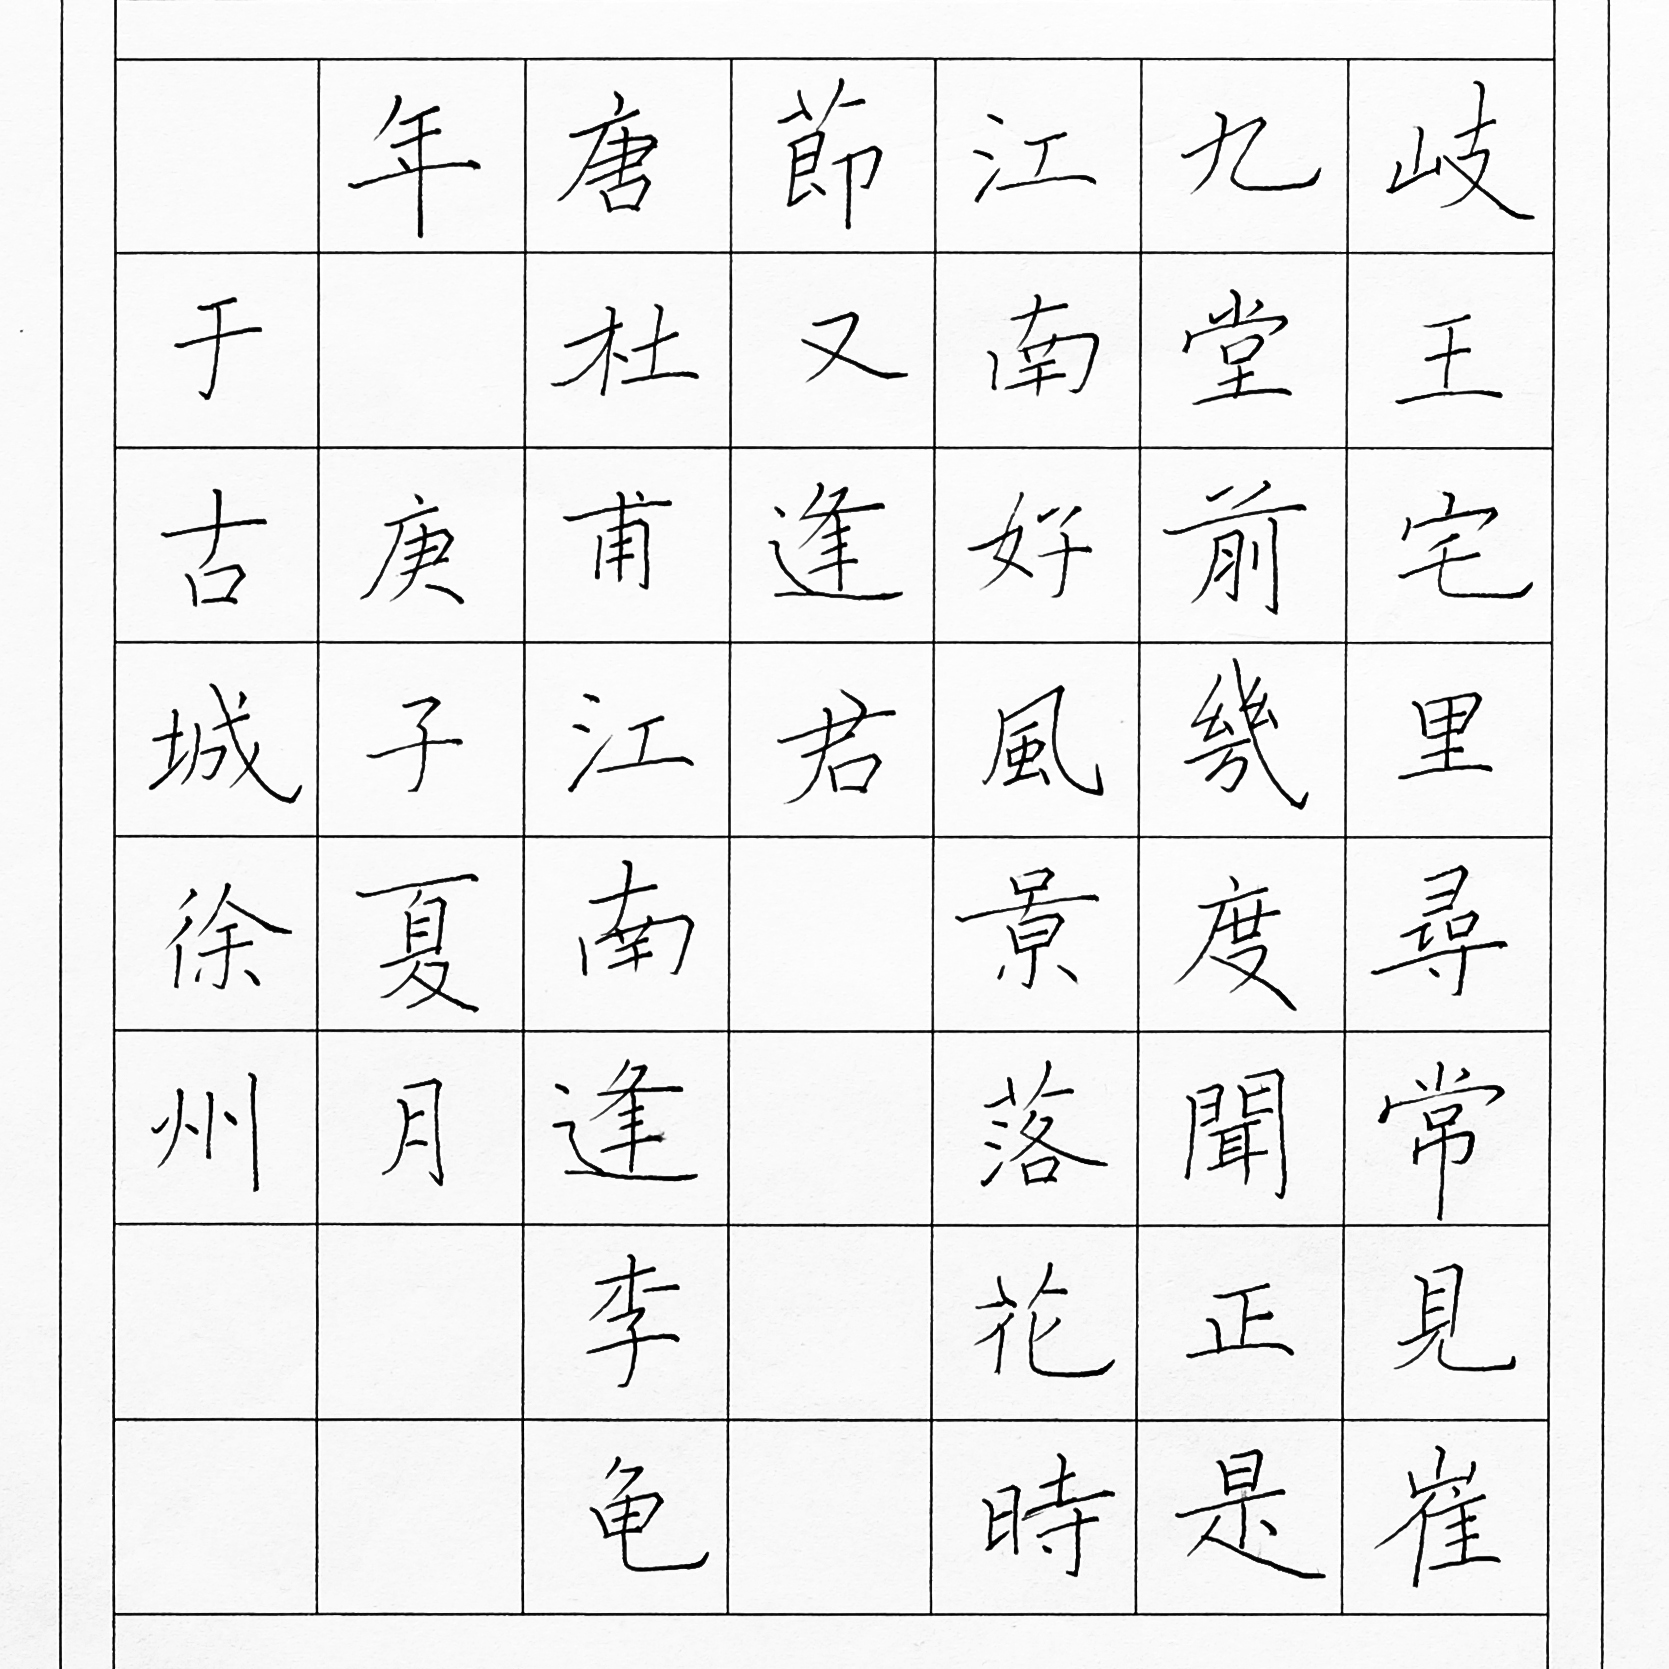 岐王宅里尋常見崔
九堂前幾度聞正是
江南好風景落花時
節又逢君
唐杜甫江南逢李龟
年 庚子夏月
于古城徐州